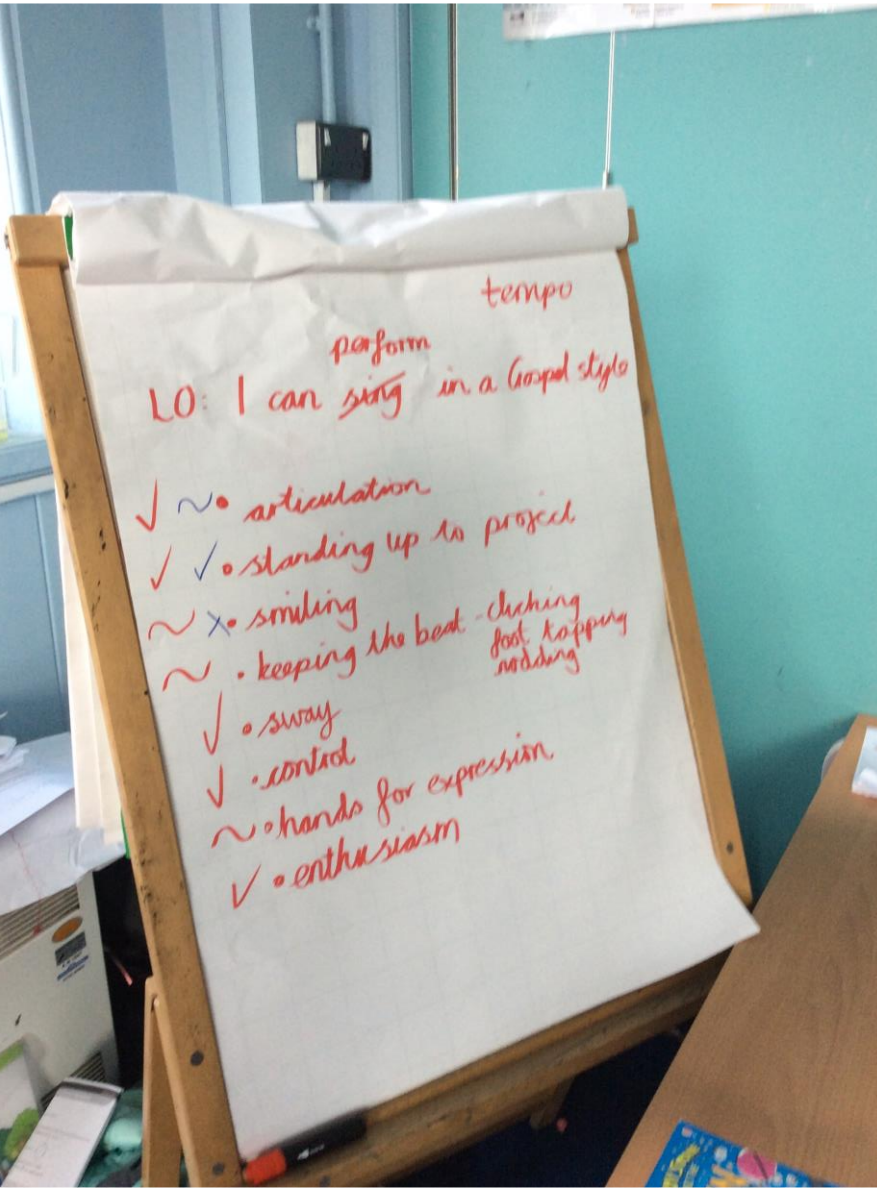 tempo
perform
LO: I can sing in a Gospel style
✓ ~• articulation
✓ ✓• standing up to project
~ x• smiling
~ • keeping the beat - clicking
foot tapping
nodding
✓ • sway
✓ • control
~ • hands for expression
✓ • enthusiasm